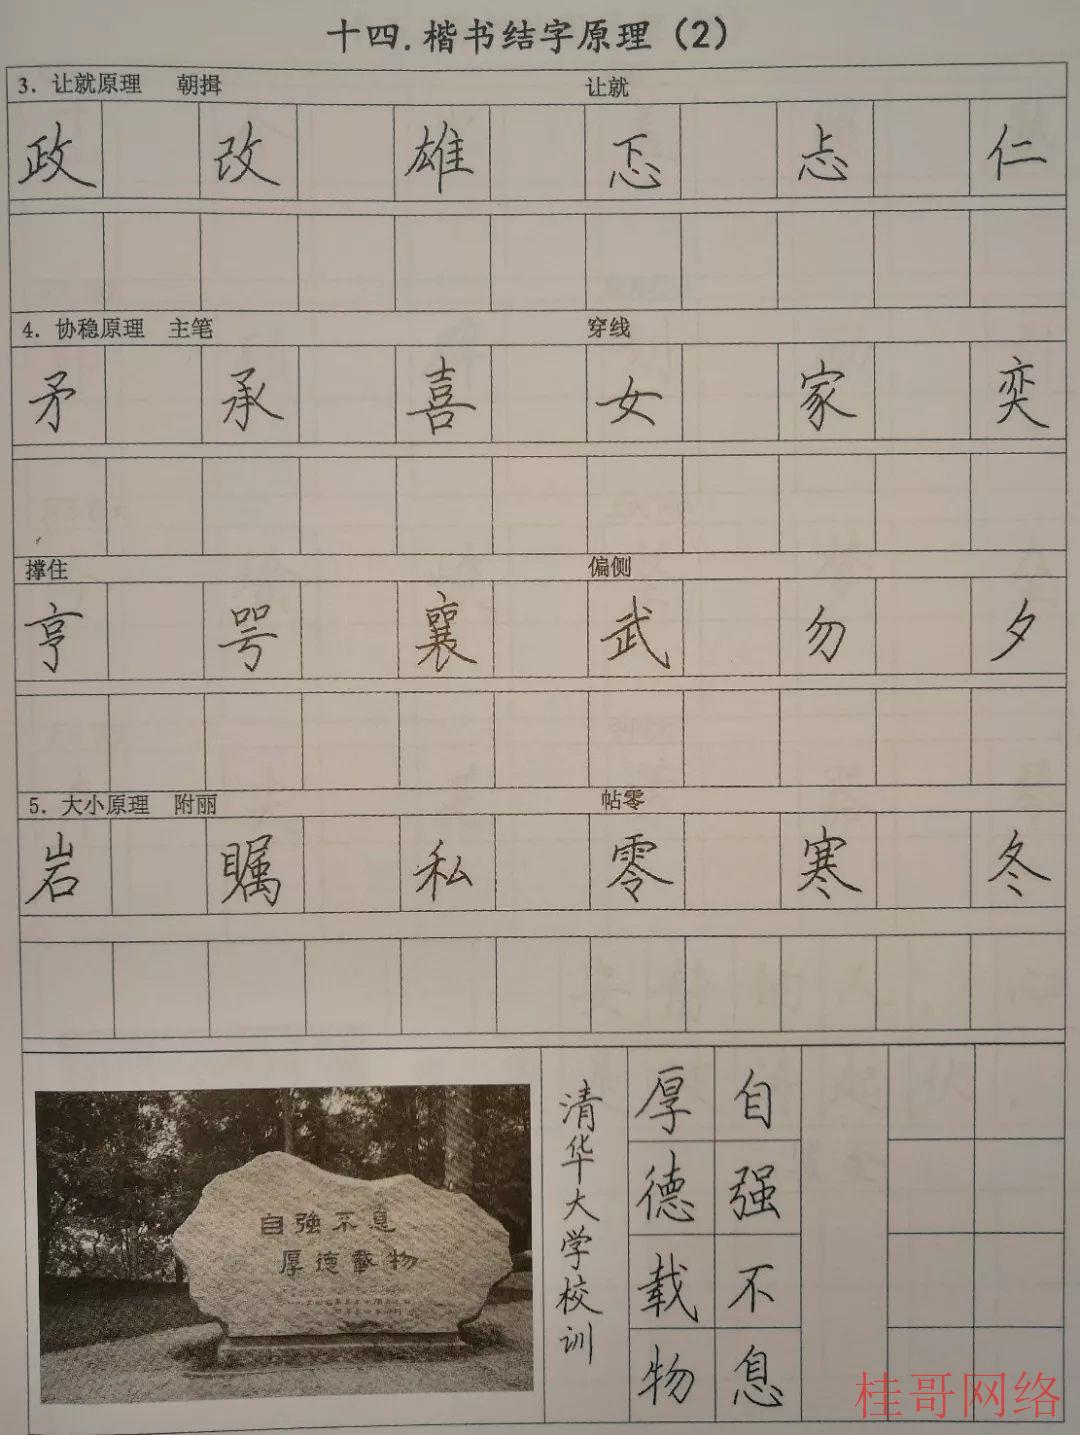 十四.楷书结字原理（2）
3. 让就原理 朝揖 让就
政 改 雄 忑 忐 仁
4. 协稳原理 主笔 穿线
矛 承 喜 女 家 奕
撑住 偏侧
亨 咢 襄 武 勿 夕
5. 大小原理 附丽 帖零
岩 瞩 私 零 寒 冬
自強不息
厚德載物
自强不息
厚德载物
清华大学校训
桂哥网络